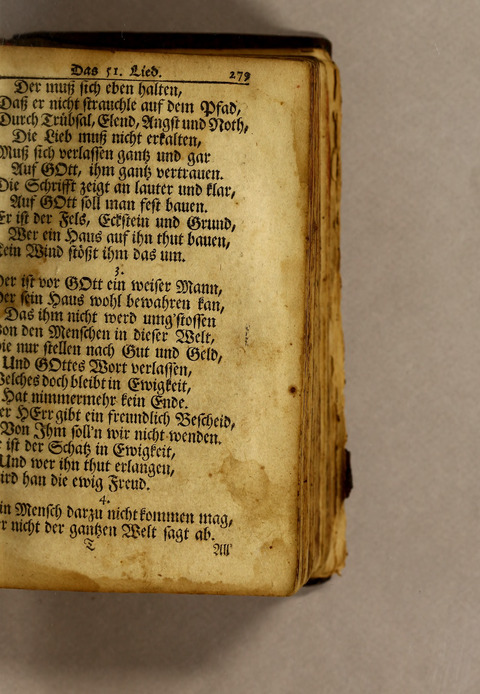 Das 51. Lied. 279
Der muß sich eben halten,
Daß er nicht strauchle auf dem Pfad,
Durch Trübsal, Elend, Angst und Noth,
Die Lieb muß nicht erkalten,
Muß sich verlassen gantz und gar
Auf GOtt, ihm gantz vertrauen.
Die Schrifft zeigt an lauter und klar,
Auf GOtt soll man fest bauen.
Er ist der Fels, Eckstein und Grund,
Wer ein Haus auf ihn thut bauen,
kein Wind stößt ihm das um.
3.
Der ist vor GOtt ein weiser Mann,
Der sein Haus wohl bewahren kan,
Das ihm nicht werd umg'stossen
Von den Menschen in dieser Welt,
Die nur stellen nach Gut und Geld,
Und GOttes Wort verlassen,
Welches doch bleibt in Ewigkeit,
Hat nimmermehr kein Ende.
er HErr gibt ein freundlich Bescheid,
Von Ihm soll'n wir nicht wenden.
ist der Schatz in Ewigkeit,
Und wer ihn thut erlangen,
ird han die ewig Freud.
4.
in Mensch darzu nicht kommen mag,
er nicht der gantzen Welt sagt ab.
T All'